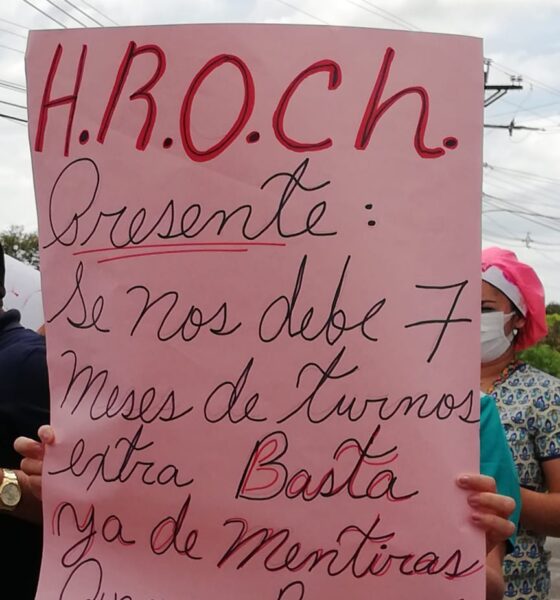 H.R.O.Ch.
Presente:
Se nos debe 7
Meses de turnos
extra Basta
ya de mentiras
Que